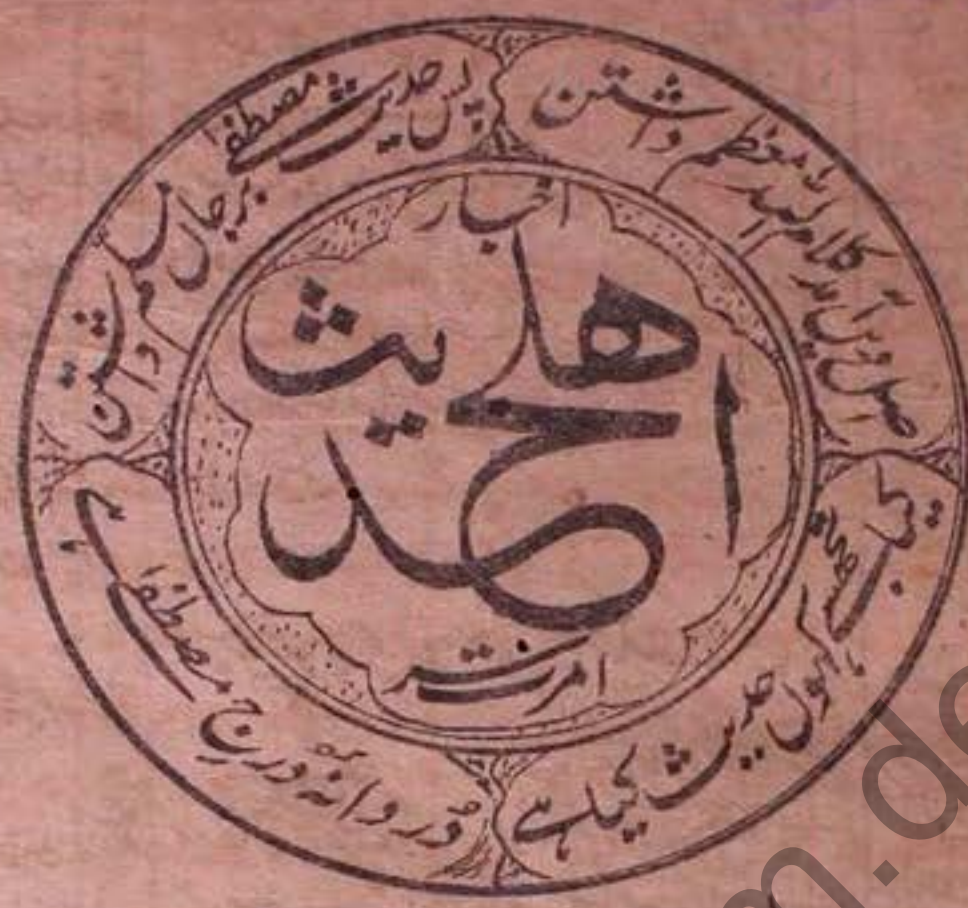 اخبار
اهلحدیث
امرتسر
اصل دین آمد کلام اللہ معظم داشتن
پس حدیث مصطفےٰ بر جاں مسلم داشتن
کیا تجھسے کہوں حدیث کیا ہے
دُردانۂ درجِ مصطفےٰ ہے